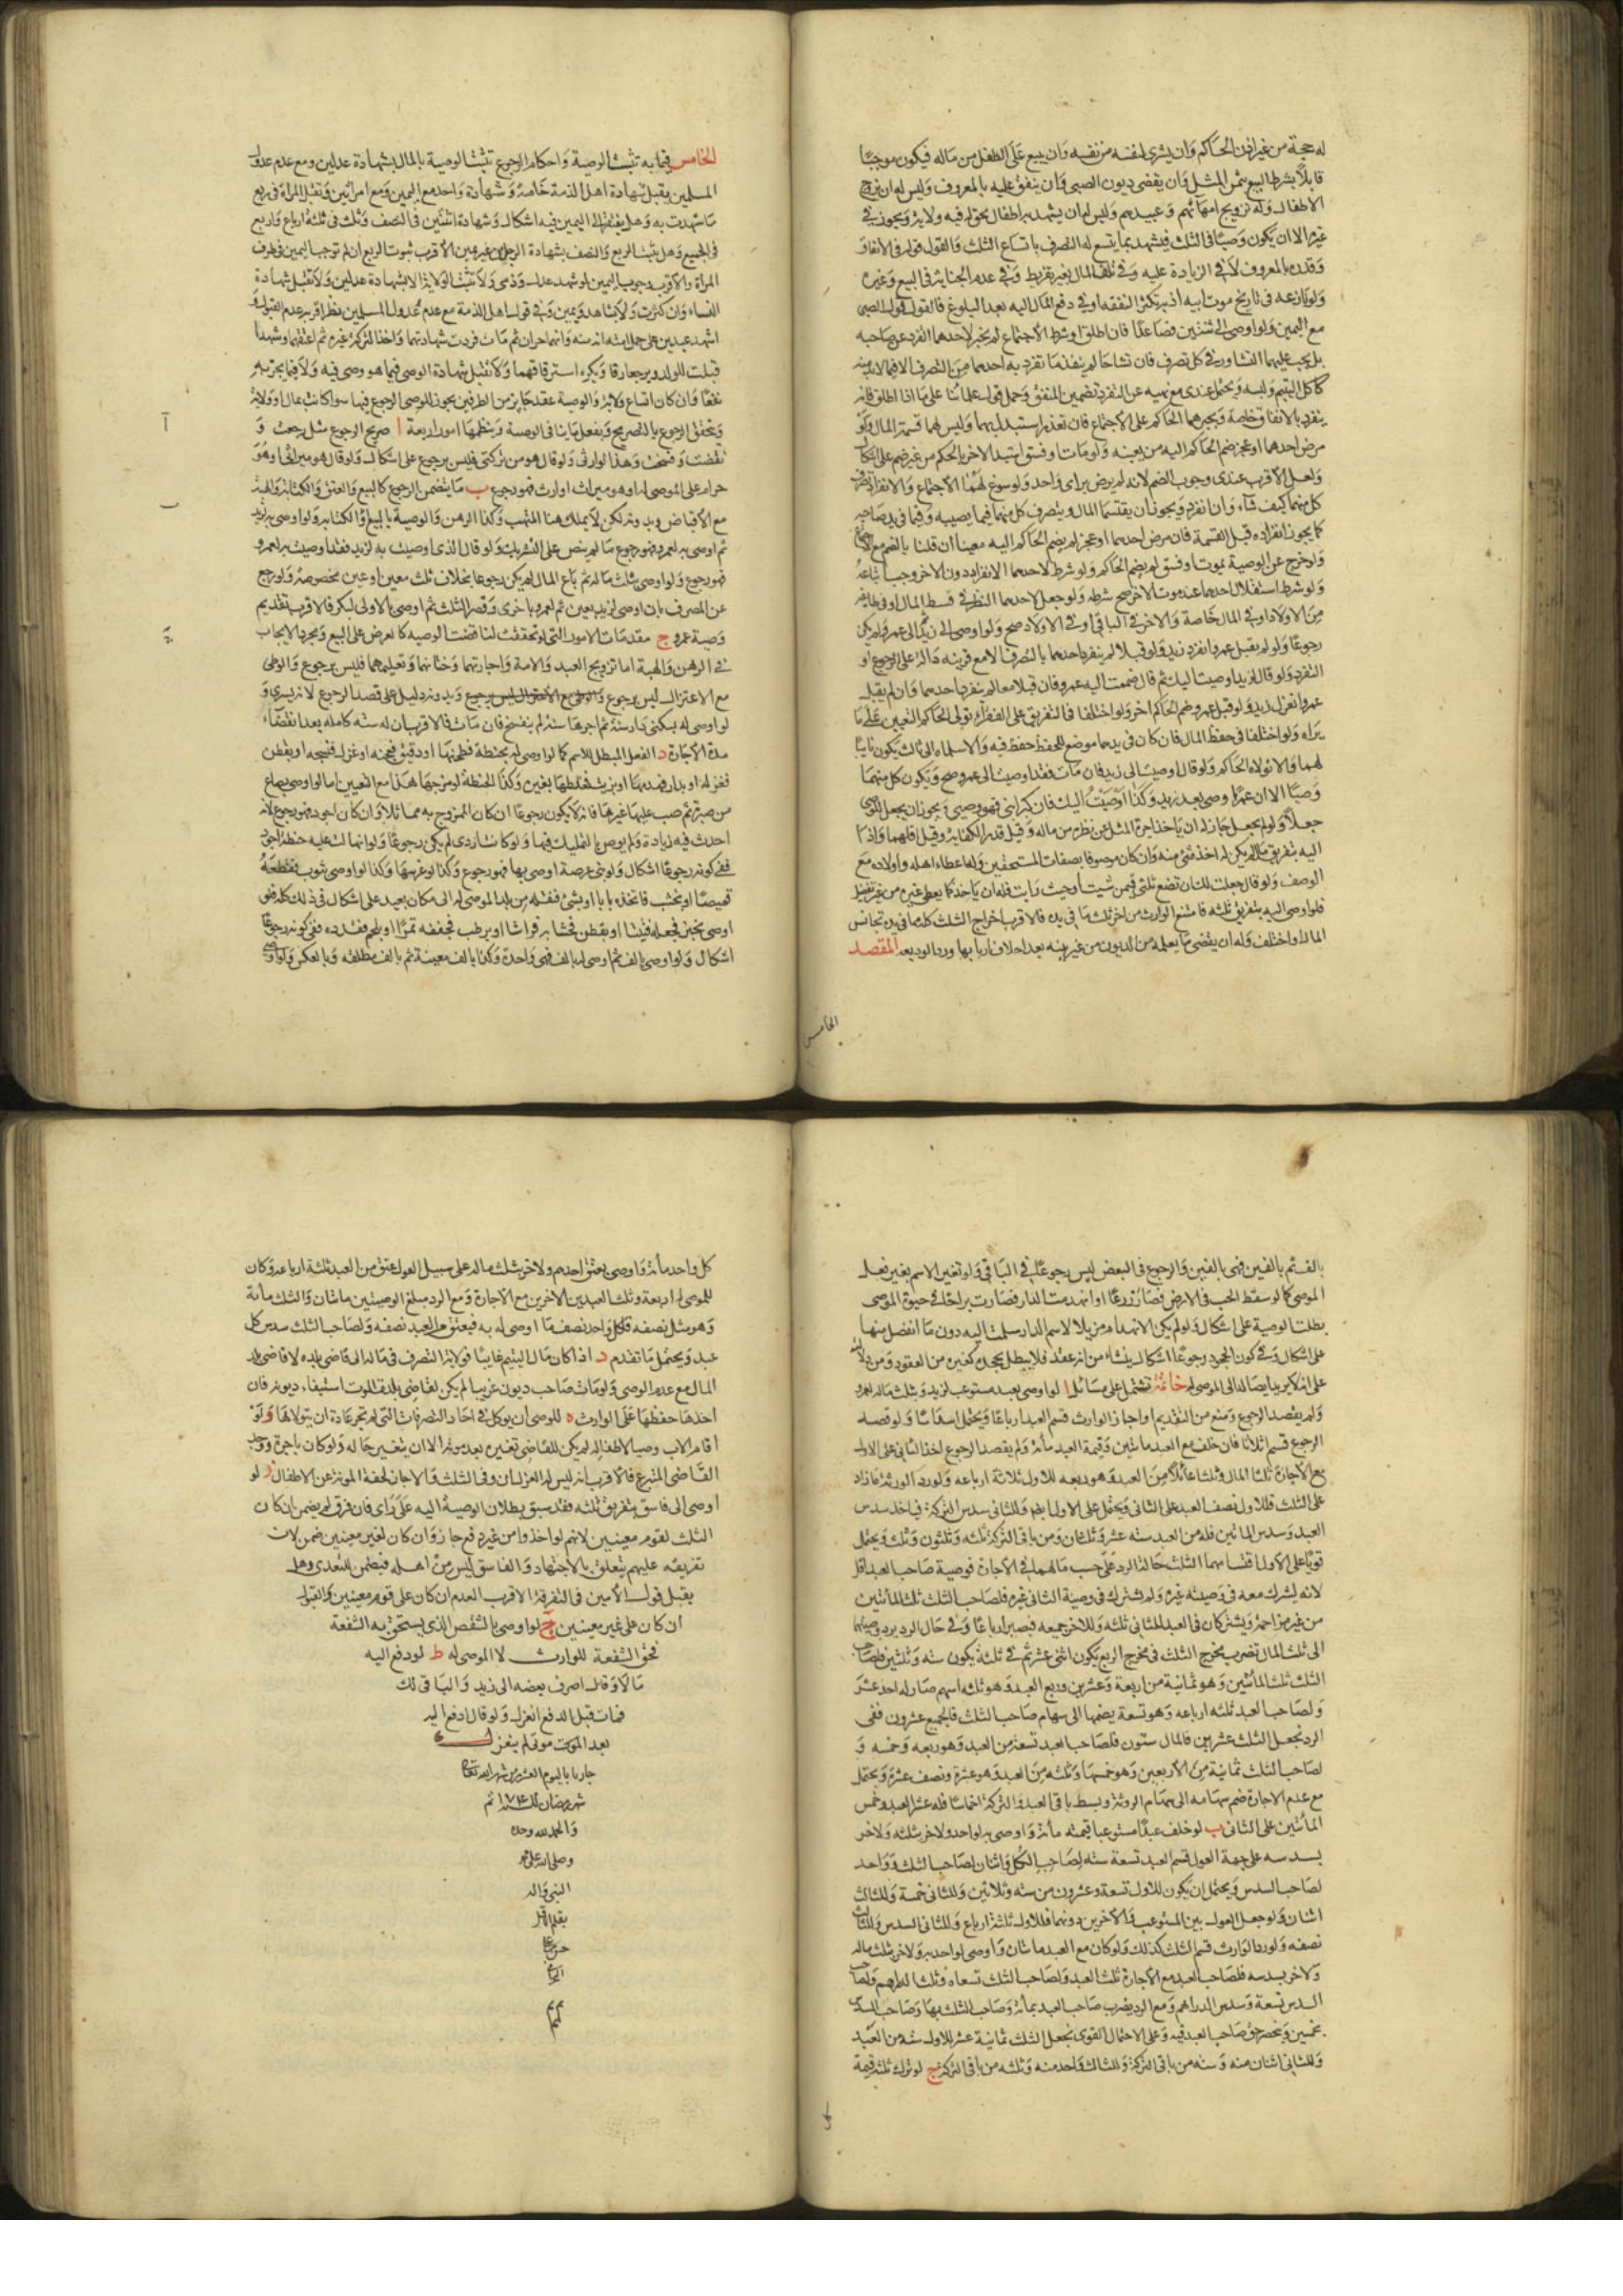 له حجة من غير اذن الحاكم وان يشترى لنفسه من نفسه وان يبيع على الطفل من ماله فيكون موجبا
قابلا بشرط البيع بثمن المثل وان يقضى ديون الصبى وان ينفق عليه بالمعروف وليس له ان يزوج
الاطفال وله تزويج امهائهم وعبيدهم وليس له ان يشهد للاطفال بحق له فيه ولاية ويجوز فى
غيره الا ان يكون وصيا فى الثلث فيشهد بما يتسع له التصرف باتساع الثلث والقول قوله فى الانفاق
وقدره بالمعروف لا فى الزيادة عليه وفى تلف المال بغير تفريط وفى عدم الخيانة فى البيع وغيره
ولو نازعه فى تاريخ موت ابيه اذ به تكثر النفقة او فى دفع المال اليه بعد البلوغ فالقول قول الصبى
مع اليمين ولو اوصى الى اثنين فصاعدا فان اطلق او شرط الاجتماع لم يجز لاحدهما التفرد عن صاحبه
بل يجب عليهما التشاور فى كل تصرف فان تشاحا لم ينفذ ما تفرد به احدهما من التصرف الا فيما لا بد منه
كاكل اليتيم ولبسه ويحتمل عندى مع نهيه عن التفرد تضمين المنفق وحمل قول علمائنا على ما اذا اطلق فانه
ينفرد بالانفاق خاصة ويجبرهما الحاكم على الاجتماع فان تعذر استبدل بهما وليس لهما قسمة المال ولو
مرض احدهما او عجز ضم الحاكم اليه من يعينه ولو مات او فسق استبد الاخر بالحكم من غير ضم على اشكال
ولعل الاقرب عندى وجوب الضم لانه لم يرض براى واحد ولو سوغ لهما الاجتماع والانفراد تصرف
كل منهما كيف شاء وان انفرد ويجوز ان يقتسما المال ويتصرف كل منهما فيما يصيبه وفيما فى يد صاحبه
كما يجوز انفراده قبل القسمة فان مرض احدهما او عجز لم يضم الحاكم اليه معينا ان قلنا بالضم مع
ولو خرج عن الوصية بموت او فسق لم يضم الحاكم ولو شرط لاحدهما الانفراد دون الاخر وجب اتباعه
ولو شرط استقلال احدهما عند موت الاخر صح شرطه ولو جعل لاحدهما النظر فى قسط المال او فى طائفة
من الاولاد او فى المال خاصة والاخر فى الباقى او فى الاولاد صح ولو اوصى الى زيد ثم الى عمرو لم يكن
رجوعا ولو لم يقبل عمرو انفرد زيد ولو قبلا لم ينفرد احدهما بالتصرف الا مع قرينة دالة على الرجوع او
التفرد ولو قال لزيد اوصيت اليك ثم قال ضممت اليه عمرو فان قبلا معا لم ينفرد احدهما وان لم يقبل
عمرو انعزل زيد ولو قبل عمرو ضم الحاكم اخر ولو اختلفا فى التفريق على الفقراء تولى الحاكم التعيين على ما
يراه ولو اختلفا فى حفظ المال فان كان فى يدهما موضع للحفظ حفظ فيه والا سلماه الى ثالث يكون نايبا
لهما والا تولاه الحاكم ولو قال اوصيت الى زيد فان مات فقد اوصيت الى عمرو صح ويكون كل منهما
وصيا الا ان عمروا وصى بعد زيد وكذا اوصيت اليك فان كبر ابنى فهو وصيى ويجوز ان يجعل للوصى
جعلا ولو لم يجعل جاز له ان ياخذ اجرة المثل عن نظره من ماله وقيل قدر الكفاية وقيل اقلهما واذا
اليه بتفريق مال لم يكن له اخذ شئ منه وان كان موصوفا بصفات المستحقين وله اعطاء اهله واولاده مع
الوصف ولو قال جعلت لك ان تضع ثلثى فيمن شئت او حيث رايت فله ان ياخذ كما يعطى غيره من غير تفضيل
فلو اوصى اليه بتفريق ثلثه فامتنع الوارث من اخر ثلث ما فى يده فالاقرب اخراج الثلث كله مما فى يده تجانس
المال او اختلف وله ان يقضى ما يعلمه من الديون من غير بينة بعد احلاف اربابها ورد الوديعة المقصد
الخامس
الخامس فيما به تثبت الوصية واحكام الرجوع تثبت الوصية بالمال بشهادة عدلين ومع عدم عدول
المسلمين يقبل شهادة اهل الذمة خاصة وشهادة واحد مع اليمين ومع امراتين وتقبل المراة فى ربع
ما شهدت به وهل يفتقر الى اليمين فيه اشكال وشهادة اثنتين فى النصف وثلث فى ثلثة ارباع واربع
فى الجميع وهل يثبت الربع والنصف بشهادة الرجل من غير يمين الاقرب ثبوت الربع ان لم توجب اليمين فى طرف
المراة والاقرب وجوب اليمين لو شهد عدل وذمى ولا تثبت الولاية الا بشهادة عدلين ولا تقبل شهادة
النساء وان كثرت ولا شاهد ويمين وفى قول اهل الذمة مع عدم عدول المسلمين نظر اقربه عدم القبول ولو
اشهد عبدين على حمل امته انه منه وانهما حران ثم مات فردت شهادتهما واخذ التركة غيره ثم اعتقهما وشهدا
قبلت للولد ويرجعا رقا ويكره استرقاقهما ولا تقبل شهادة الوصى فيما هو وصى فيه ولا فيما يجر به
نفعا وان كان اتساع ولاية والوصية عقد جايز من الطرفين يجوز للموصى الرجوع فيها سوا كانت بمال او ولاية
ويتحقق الرجوع بالتصريح وبفعل ما ينافى الوصية وينظمها امور اربعة ا صريح الرجوع مثل رجعت و
نقضت وفسخت وهذا لوارثى ولو قال هو من تركتى فليس برجوع على اشكال ولو قال هو ميراثى او هو
حرام على الموصى له او هو ميراث او ارث فهو رجوع ب ما يتضمن الرجوع كالبيع والعتق والكتابة والهبة
مع الاقباض وبدونه لكن لا يملك هنا المتهب وكذا الرهن والوصية بالبيع والكتابة ولو اوصى به لزيد
ثم اوصى به لعمرو فهو رجوع ما لم ينص على التشريك ولو قال الذى اوصيت به لزيد فقد اوصيت به لعمرو
فهو رجوع ولو اوصى بثلث ماله ثم باع المال لم يكن رجوعا بخلاف ثلث معين او عين مخصوصة ولو رجع
عن المصرف بان اوصى لزيد بعين ثم لعمرو باخرى وقصر الثلث ثم اوصى بالاولى لبكر فالاقرب تقديم
وصية عمرو ج مقدمات الامور التى لو تحققت لناقضت الوصية كالعرض على البيع ومجرد الايجاب
فى الرهن والهبة اما تزويج العبد والامة واجارتهما وختانهما وتعليمهما فليس برجوع والوطى
مع الاعتزال ليس برجوع وبدونه دليل على قصد الرجوع لانه تسرى و
لو اوصى له بسكنى دار سنة ثم اجرها سنة لم ينفسخ فان مات فالاقرب ان له سنة كاملة بعد انقضاء
مدة الاجارة د الفعل المبطل للاسم كما لو اوصى له بحنطة فطحنها او دقيق فعجنه او غزل فنسجه او بقطن
فغزله او بدار فهدمها او بزيت فخلطها بغيره وكذا الحنطة لو مزجها هذا مع التعيين اما لو اوصى بصاع
من صبرة ثم صب عليها غيرها فانه لا يكون رجوعا ان كان الممزوج به مماثلا وان كان اجود فهو رجوع لانه
احدث فيه زيادة ولم يوص بالتمليك فيها ولو كانت اردى لم يكن رجوعا ولو انهالت عليه حنطة اجود
ففى كونه رجوعا اشكال ولو بنى عرصة اوصى بها فهو رجوع وكذا لو غرسها وكذا لو اوصى بثوب فقطعه
قميصا او بخشب فاتخذه بابا او بشئ فنقله من بلد الموصى له الى مكان بعيد على اشكال فى ذلك كله ولو
اوصى بخبز فجعله فتيتا او بقطن فحشا به فراشا او برطب فجففه تمرا او بلحم فقدده ففى كونه رجوعا
اشكال ولو اوصى بالف ثم اوصى له بالف فهى واحدة وكذا بالف معينة ثم بالف مطلقة وبالعكس ولو اوصى
بالف ثم بالفين فهى بالفين والرجوع فى البعض ليس رجوعا فى الباقى ولو تغير الاسم بغير فعل
الموصى كما لو سقط الحب فى الارض فصار زرعا او انهدمت الدار فصارت براحا فى حيوة الموصى
بطلت الوصية على اشكال ولو لم يكن الانهدام مزيلا لاسم الدار سلمت اليه دون ما انفصل منها
على اشكال وفى كون الجحود رجوعا اشكال ينشاء من انه عقد فلا يبطل بجحده كغيره من العقود ومن دلالته
على انه لا يريد ايصاله الى الموصى له خاتمة تشتمل على مسائل ا لو اوصى بعبد مستوعب لزيد وبثلث ماله لعمرو
ولم يقصد الرجوع ومنع من التقديم او اجاز الوارث قسم العبد ارباعا ويحتمل اسداسا ولو قصد
الرجوع قسم اثلاثا فان خلف مع العبد مائتين وقيمة العبد مائة ولم يقصد الرجوع اخذ الثانى على الاول
مع الاجازة ثلث المال وثلثا عائلا من العبد وهو ربعه للاول ثلاثة ارباعه ولو رد الورثة ما زاد
على الثلث فللاول نصف العبد على الثانى ويحتمل على الاول ايضا وللثانى سدس التركة فياخذ سدس
العبد وسدس المائتين فله من العبد ستة عشر وثلثان ومن باقى التركة ثلثة وثلثون وثلث ويحتمل
قويا على الاول اقتسامهما الثلث حالة الرد على حسب ما لهما فى الاجازة فوصية صاحب العبد اقل
لانه يشرك معه فى وصيته غيره ولم يشترك فى وصية الثانى غيره فلصاحب الثلث ثلث المائتين
من غير مزاحمة ويشتركان فى العبد للثانى ثلثه وللاخر جميعه فيصير ارباعا وفى حال الرد يرد وصيتهما
الى ثلث المال تضرب مخرج الثلث فى مخرج الربع يكون اثنى عشر ثم فى ثلثة يكون ستة وثلثين فلصاحب
الثلث ثلث المائتين وهو ثمانية من اربعة وعشرين وربع العبد وهو ثلثة اسهم صار له احد عشر
ولصاحب العبد ثلثة ارباعه وهو تسعة يضمها الى سهام صاحب الثلث فالجميع عشرون ففى
الرد تجعل الثلث عشرين فالمال ستون فلصاحب العبد تسعة من العبد وهو ربعه وخمسه و
لصاحب الثلث ثمانية من الاربعين وهو خمسها وثلثة من العبد وهو عشره ونصف عشره ويحتمل
مع عدم الاجازة ضم سهامه الى سهام الورثة وبسط باقى العبد والتركة اخماسا فله عشر العبد وخمس
المائتين على الثانى ب لو خلف عبدا مستوعبا قيمته مائة واوصى به لواحد ولاخر بثلثه ولاخر
بسدسه على جهة العول قسم العبد تسعة ستة لصاحب الكل واثنان لصاحب الثلث وواحد
لصاحب السدس ويحتمل ان يكون للاول تسعة وعشرون من ستة وثلاثين وللثانى خمسة وللثالث
اثنان ولو جعل العول بين المستوعب والاخرين دونهما فللاول ثلثة ارباع وللثانى السدس وللثالث
نصفه ولو رد الوارث قسم الثلث كذلك ولو كان مع العبد مائتان واوصى لواحد به ولاخر بثلث ماله
ولاخر بسدسه فلصاحب العبد مع الاجازة ثلثا العبد ولصاحب الثلث تسعاه وثلث الدراهم ولصاحب
السدس تسعة وسدس الدراهم ومع الرد يضرب صاحب العبد بمائة وصاحب الثلث بها وصاحب السدس
بخمسين وينحصر حق صاحب العبد فيه وعلى الاحتمال القوى نجعل الثلث ثمانية عشر للاول ستة من العبد
وللثانى اثنان منه وستة من باقى التركة وللثالث واحد منه وثلثه من باقى التركة ج لو ترك ثلثة قيمة
كل
كل واحد مائة واوصى بعتق احدهم ولاخر بثلث ماله على سبيل العول عتق من العبد ثلثة ارباعه وكان
للموصى له اربعة وثلث العبدين الاخرين مع الاجازة ومع الرد مبلغ الوصيتين مائتان والثلث مائة
وهو مثل نصفه فلكل واحد نصف ما اوصى له به فيعتق من العبد نصفه ولصاحب الثلث سدس كل
عبد ويحتمل ما تقدم د اذا كان مال اليتيم غايبا فولاية التصرف فى ماله الى قاضى بلده لا قاضى بلد
المال مع عدم الوصى ولو مات صاحب ديون غريبا لم يكن لقاضى بلدة الموت استيفاء ديونه فان
اخذها حفظها على الوارث ه للوصى ان يوكل فى احاد التصرفات التى لم تجر عادة ان يتولاها و لو
اقام الاب وصيا لاطفاله لم يكن للقاضى تغيره بعد موته الا ان يتغير حاله ولو كان باجرة ووجد
القاضى المتبرع فالاقرب انه ليس له العزل ان وفى الثلث والا جاز لخفة المؤنة عن الاطفال ز لو
اوصى الى فاسق بتفريق ثلثه فقد سبق بطلان الوصية اليه على راى فان فرق لم يضمن ان كان
الثلث لقوم معينين لانهم لو اخذوا من غير دفع جاز وان كان لغير معينين ضمن لان
تفريقه عليهم يتعلق بالاجتهاد والفاسق ليس من اهله فيضمن للتعدى وهل
يقبل قول الامين فى التفرقة الاقرب العدم ان كان على قوم معينين والقبول
ان كان على غير معينين ح لو اوصى بالشقص الذى يستحق به الشفعة
فحق الشفعة للوارث لا الموصى له ط لو دفع اليه
مالا وقال اصرف بعضه الى زيد والباقى لك
فمات قبل الدفع انعزل ولو قال ادفع اليه
بعد الموت موتى لم ينعزل
شهر رمضان تم
والحمد لله وحده
وصلى الله على محمد
النبى واله
بقلم الاقل